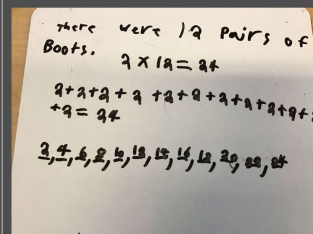 There were 12 pairs of
Boots.
2 x 12 = 24
2+2+2+2+2+2+2+2+2+2+2
+2= 24
2,4,6,8,10,12,14,16,18,20,22,24